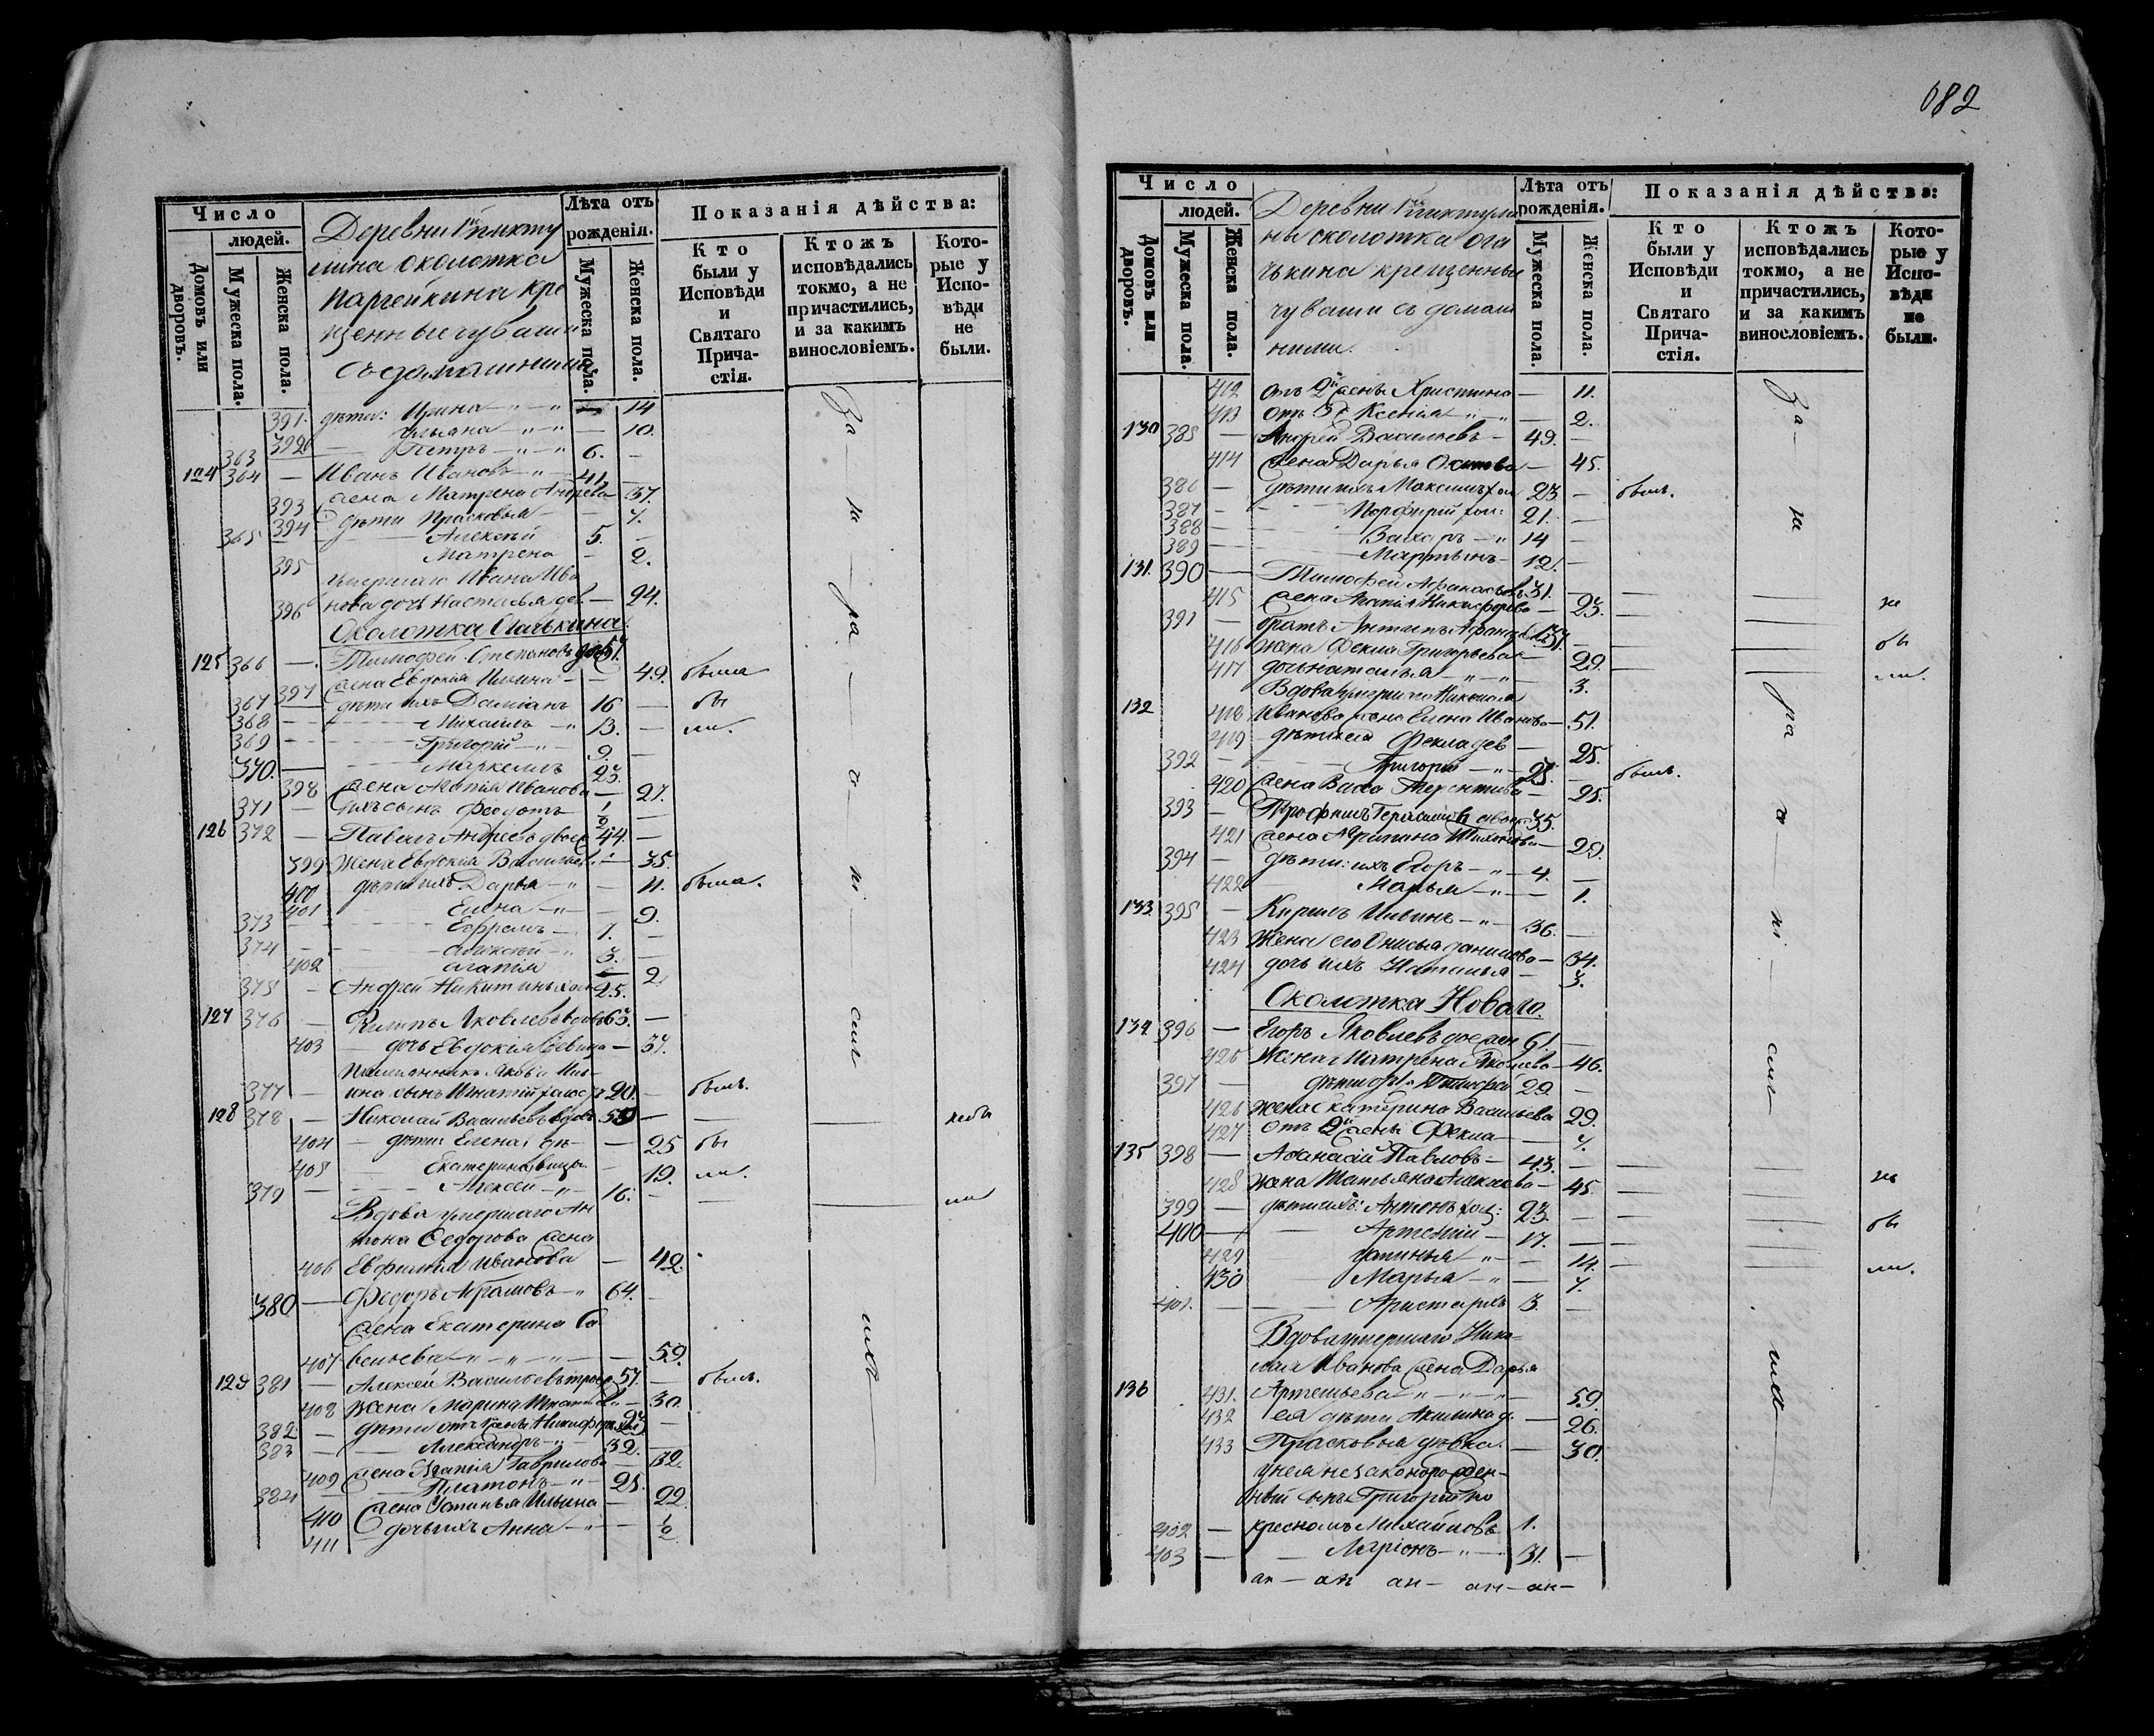 682
Число
людей.
Домовъ или дворовъ.
Мужеска пола.
Женска пола.
Деревни
лина околотка
Паргейкина кре
щенные чуваши
съ домашними.
Лѣта отъ рожденія.
Мужеска пола.
Женска пола.
Показанія дѣйства:
Кто были у Исповѣди и Святаго Причастія.
Ктожъ исповѣдались токмо, а не причастились, и за какимъ винословіемъ.
Которые у Исповѣди не были.
391. дѣти: Ирина — 14
392 Ульяна — 10.
363 Петръ 6. —
124 364 — Иванъ Ивановъ 41.
393 жена Матрена Андреева 37.
394 дѣти Прасковья — 7.
365 Алексѣй 5. —
395 Матрена — 2.
умершаго Ивана Ива
396 нова дочь Настасья дев. — 24.
Околотка Огачькина.
125 366 — Тимофей Степановъ 51.
397 жена Евдокія Ильина — 49. была
367 дѣти ихъ Даміанъ 16 — бы
368 Михаилъ 13. — ли.
369 Григорій 9. —
370. Маркеллъ 23.
398 жена Агапія Иванова — 27.
371 — ихъ сынъ Федотъ 1/2 —
126 372 — Павелъ Андреевъ двоеж 44. —
399 Жена Евдокія Васильева — 35.
400 дѣти ихъ Дарья — 11. была.
401 Елена — 9.
373 Ефремъ 7. —
374 Алексѣй 3. —
402 Агапія 2
375 — Андрей Никитинъ хол 25.
127 376 — Филипъ Яковлевъ вдовъ 63. —
403 — дочь Евдокія девица — 37.
Племянникъ Якова Иль
377 — ина сынъ Игнатій холост 20. — былъ.
128 378 — Николай Васильевъ вдовъ 59 — — не бы
404 — дѣти Елена дѣ — 25 бы
405 Екатерина вицы — 19. ли.
379 — Алексѣй 16. — — ли
Вдова умершаго Ан
тона Федорова жена
406 Евфимія Иванова — 42
380 — Федоръ Абрамовъ 64. —
жена Екатерина Са
407 вельева — 59.
129 381 — Алексѣй Васильевъ троеж 57. — былъ.
408 Жена Марина Игнатьева — 30.
382 — дѣти отъ 1 жены Никифоръ хол 27 —
383 — Александръ 32. —
409 жена Агапія Гаврилова — 32.
384 — Платонъ 25.
410 жена Устинья Ильина — 22
411 дочь ихъ Анна — 1/2
За — не — ра — че — ні — емъ — ихъ
Число
людей.
Домовъ или дворовъ.
Мужеска пола.
Женска пола.
Деревни
ны околотка Ога
чькина крещенные
чуваши съ домаш
ними.
Лѣта отъ рожденія.
Мужеска пола.
Женска пола.
Показанія дѣйства:
Кто были у Исповѣди и Святаго Причастія.
Ктожъ исповѣдались токмо, а не причастились, и за какимъ винословіемъ.
Которые у Исповѣди не были.
412 отъ 2й жены Христина — 11.
413 отъ 3й Ксенія — 2.
130 385 — Андрей Васильевъ 49. —
414 жена Дарья Осипова — 45.
386 — дѣти ихъ Максимъ хол 23 — былъ.
387 — Порфирій хол: 21. —
388 — Захаръ 14 —
389 — Мартынъ 12. —
131. 390 — Тимофей Афанасьевъ 31. —
415 жена Агапія Никифорова — 23. не
391 — братъ Антипъ Афанасьевъ 31. —
416 жена Фекла Григорьева — 29. бы
417 дочь Наталья — 3. ли.
Вдова умершаго Николая
132 418 Иванова жена Елена Иванова — 51.
419 дѣти ея Фекла дев — 25.
392 Григорій 28. — былъ.
420 жена Васса Терентьева — 25.
393 — Трофимъ Герасимовъ 35.
421 жена Агрипина Тихонова — 29.
394 — дѣти: ихъ Егоръ 4. —
422 Марья — 1.
133 395 — Кирилъ Ильинъ 36. —
423 Жена его Онисья Данилова — 34.
424 дочь ихъ Наталья — 3.
Околотка Новаго.
134 396 — Егоръ Яковлевъ двоежен 61. —
425 Жена Матрена Яковлева — 46.
397 — дѣти отъ 1 Тимофей 29. —
426 жена Екатерина Васильева 29.
427 отъ 2й жены Фекла — 7.
135 398 — Афанасій Павловъ 43. —
428 жена Татьяна Алексѣева — 45. не
399 — дѣти ихъ: Антонъ хол: 23. —
400 — Артемій 17. — бы
429 Устинья — 14.
430 Марья — 7. ли.
401. — Аристархъ 3. —
Вдова умершаго Нико-
лая Иванова жена Дарья
136 431. Артемьева — 59.
432 ея дѣти Акилина д. — 26.
433 Прасковья дѣвка. — 30.
у нея незаконорожден-
ный сынъ Григорій по
402 — кресномъ Михайловъ 1.
403 — Ларіонъ 31. —
За — не — ра — че — ні — емъ — ихъ